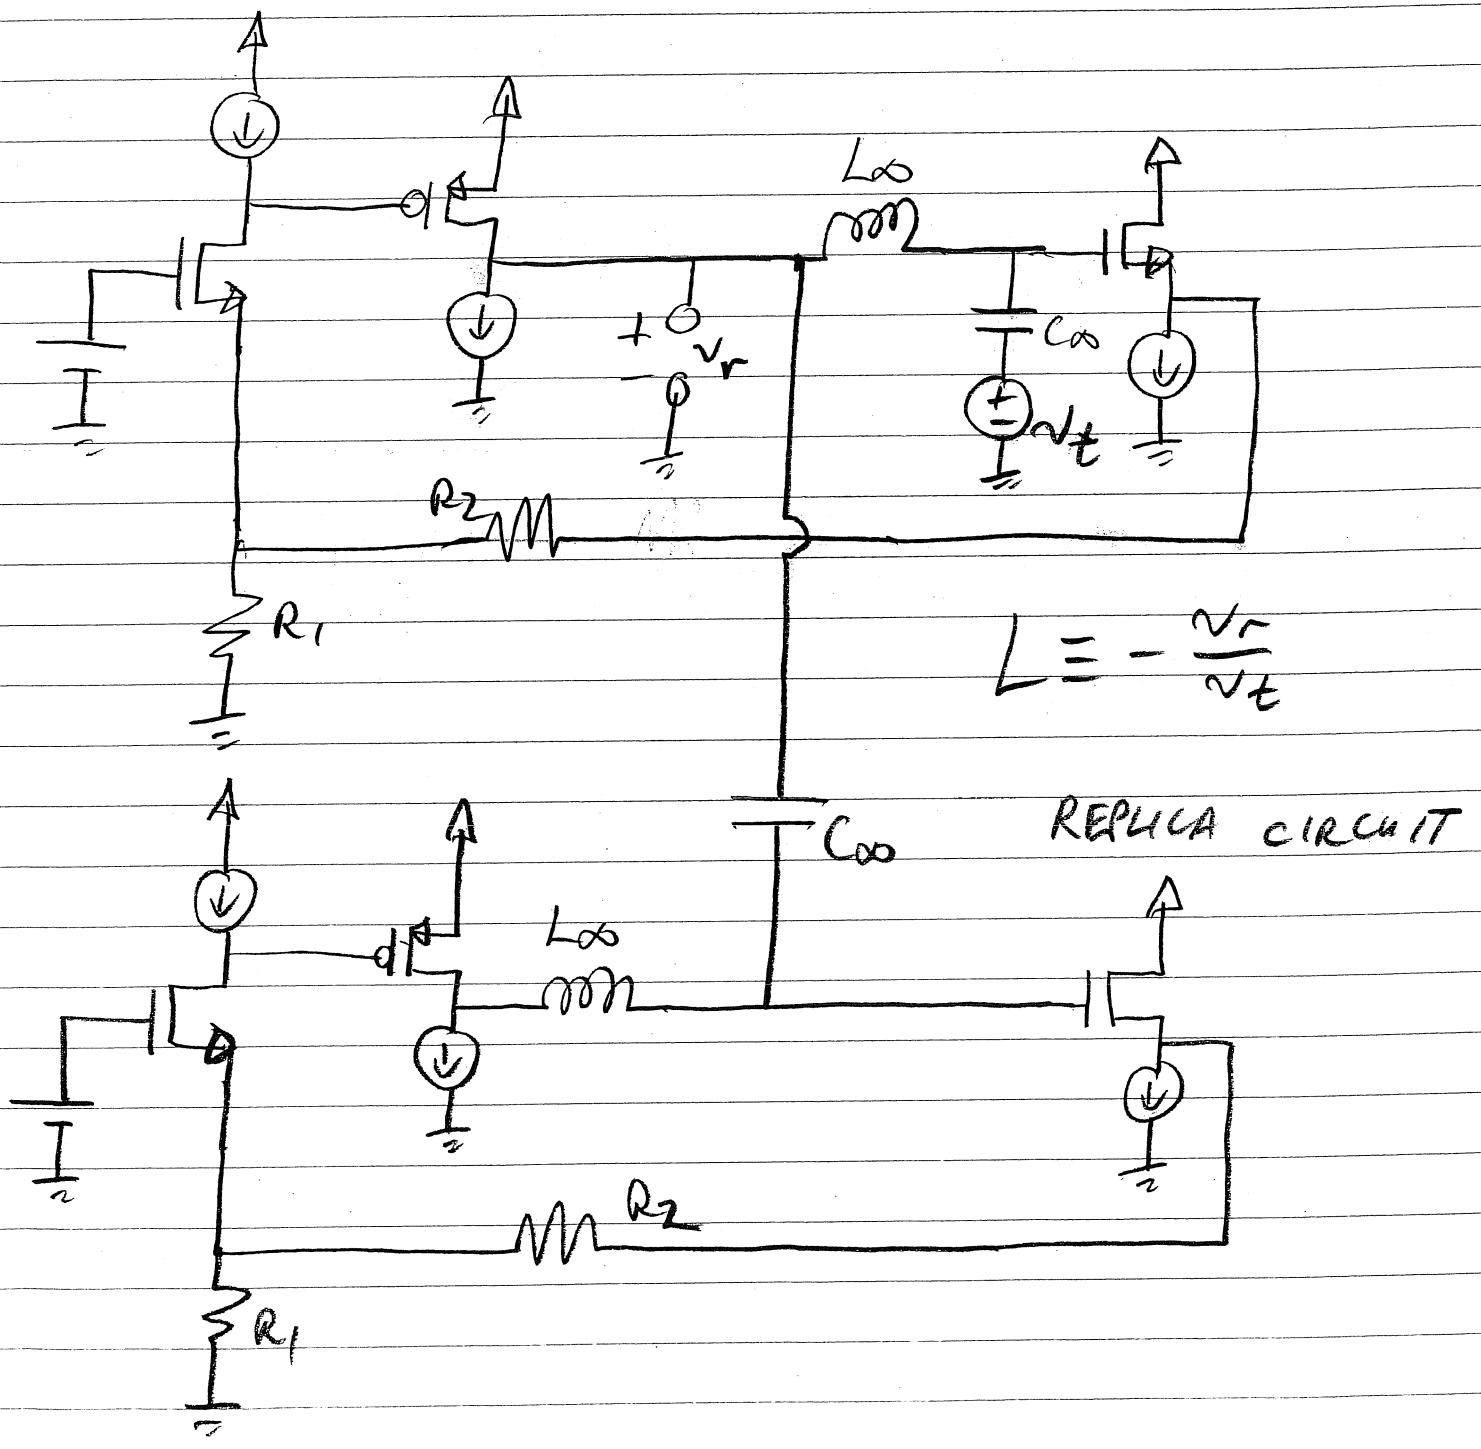 L∞
+
C∞
vr
−
+
−
vt
R2
R1
L ≡ − vr
vt
REPLICA CIRCUIT
C∞
L∞
R2
R1